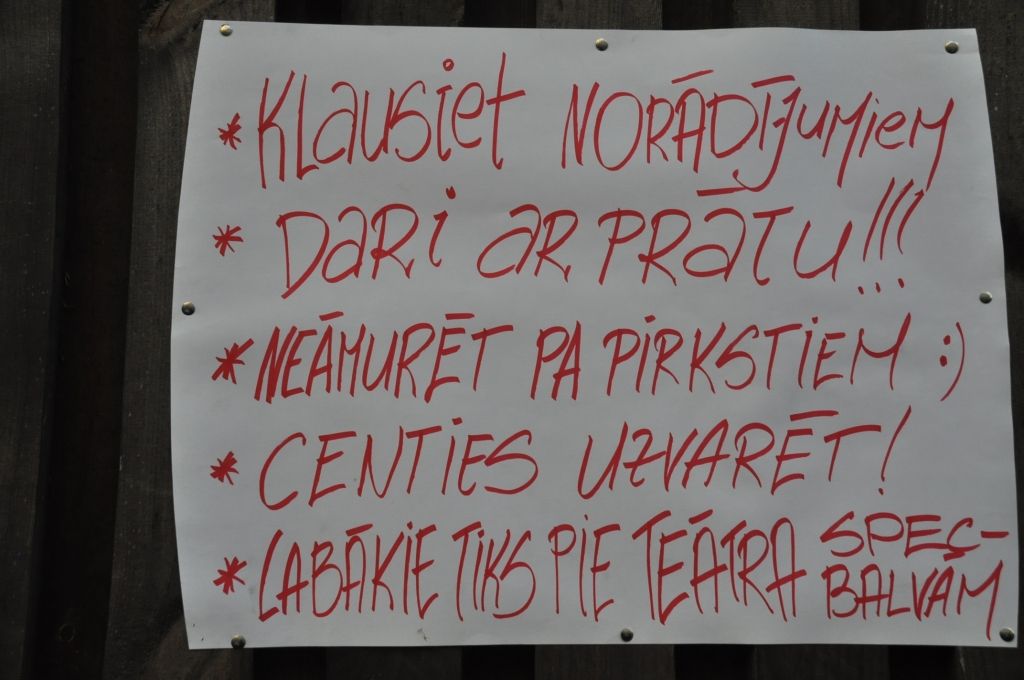 * Klausiet NORĀDĪJumiem
* DaRi aR PRātu!!!
* NEĀMURĒT PA PiRKSTIEM :)
* CENTIES UZVARĒT!
* LABĀKIE TIKS PIE TEĀTRA SPEC-
BALVĀM